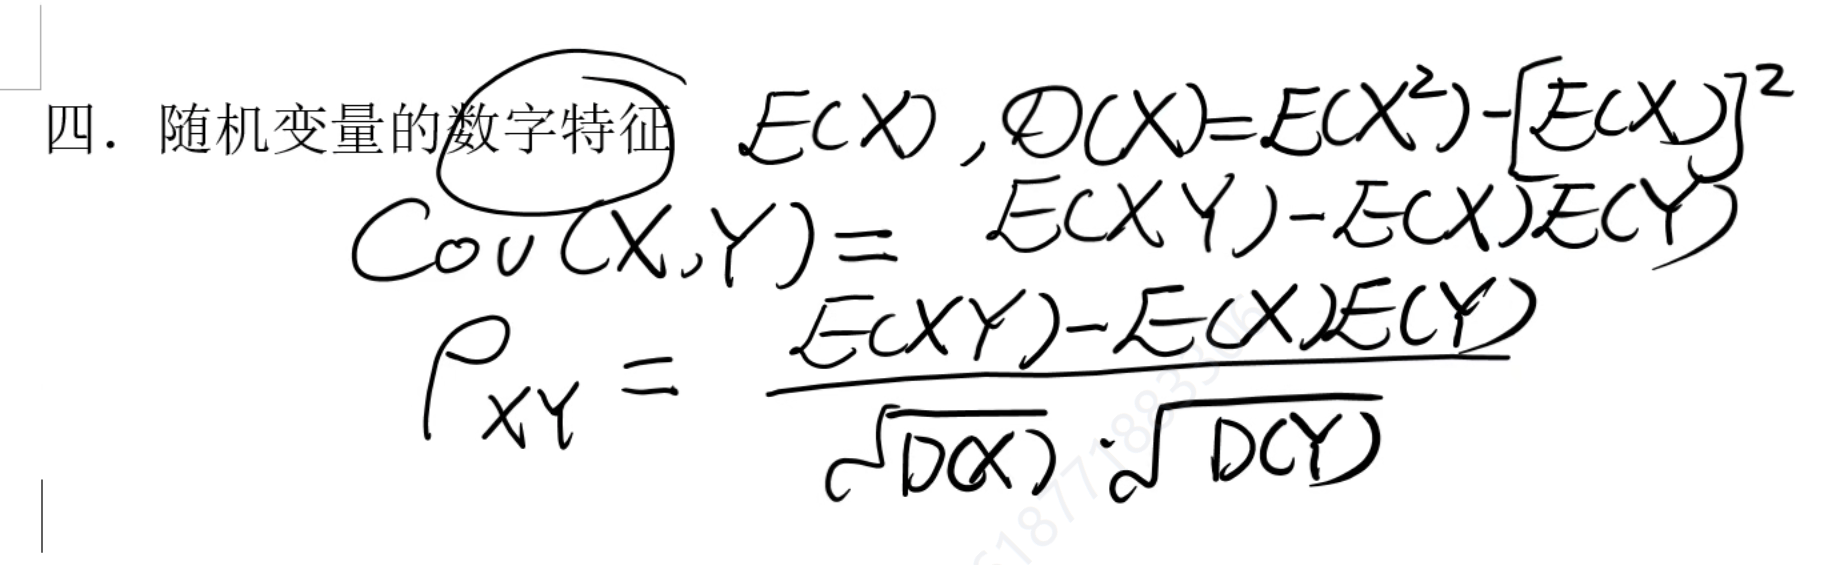 四．随机变量的数字特征 E(X), D(X)=E(X²)-[E(X)]²
Cov(X,Y)= E(XY)-E(X)E(Y)
ρ_XY = \frac{E(XY)-E(X)E(Y)}{\sqrt{D(X)}·\sqrt{D(Y)}}